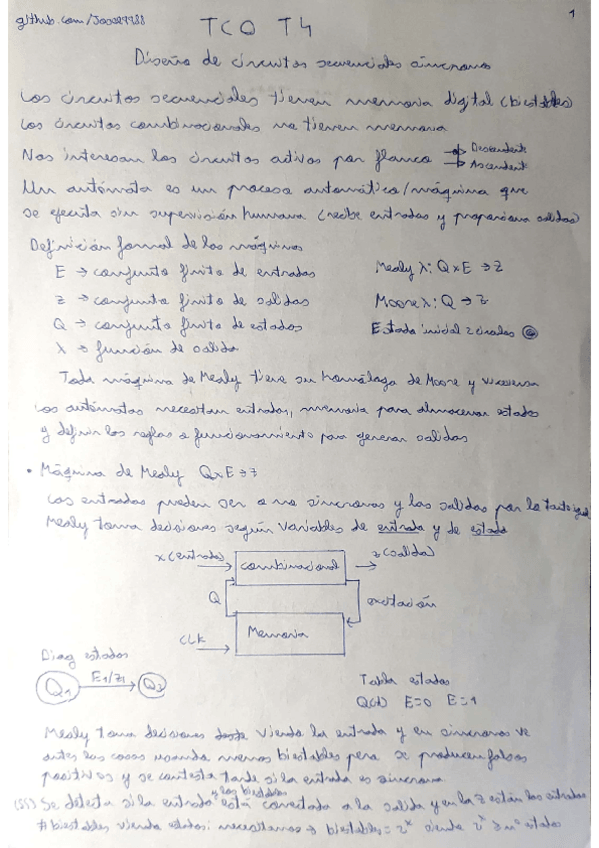 github.com/Jose29988 1
TCO T4
Diseño de circuitos secuenciales síncronos
Los circuitos secuenciales tienen memoria digital (biestables)
Los circuitos combinacionales no tienen memoria
Nos interesan los circuitos activos por flanco → Descendent
→ Ascendent
Un autómata es un proceso automático/máquina que
se ejecuta sin supervisión humana (recibe entradas y proporciona salidas)
Definición formal de las máquinas
E → conjunto finito de entradas Mealy λ: Q x E → Z
Z → conjunto finito de salidas Moore λ: Q → Z
Q → conjunto finito de estados Estado inicial 2 círculos
λ → función de salida
Toda máquina de Mealy tiene su homóloga de Moore y viceversa
Los autómatas necesitan entradas, memoria para almacenar estados
y definir las reglas o funcionamiento para generar salidas
• Máquina de Mealy QxE→Z
Las entradas pueden ser o no síncronas y las salidas por lo tanto igual
Mealy toma decisiones según variables de entrada y de estado
x(entrada) combinacional z(salida)
Q excitación
CLK Memoria
Diag estados
Q1 E1/Z1 Q2
Tabla estados
Q(t) E=0 E=1
Mealy toma decisiones viendo la entrada y en síncronas ve
antes las cosas usando menos biestables pero se producen falsos
positivos y se contesta tarde si la entrada es síncrona
y los biestables
(SSI) Se detecta si la entrada está conectada a la salida y en la Z están las entradas
# biestables viendo estados: necesitamos → biestables = 2ˣ siendo 2ˣ ≥ nº estados